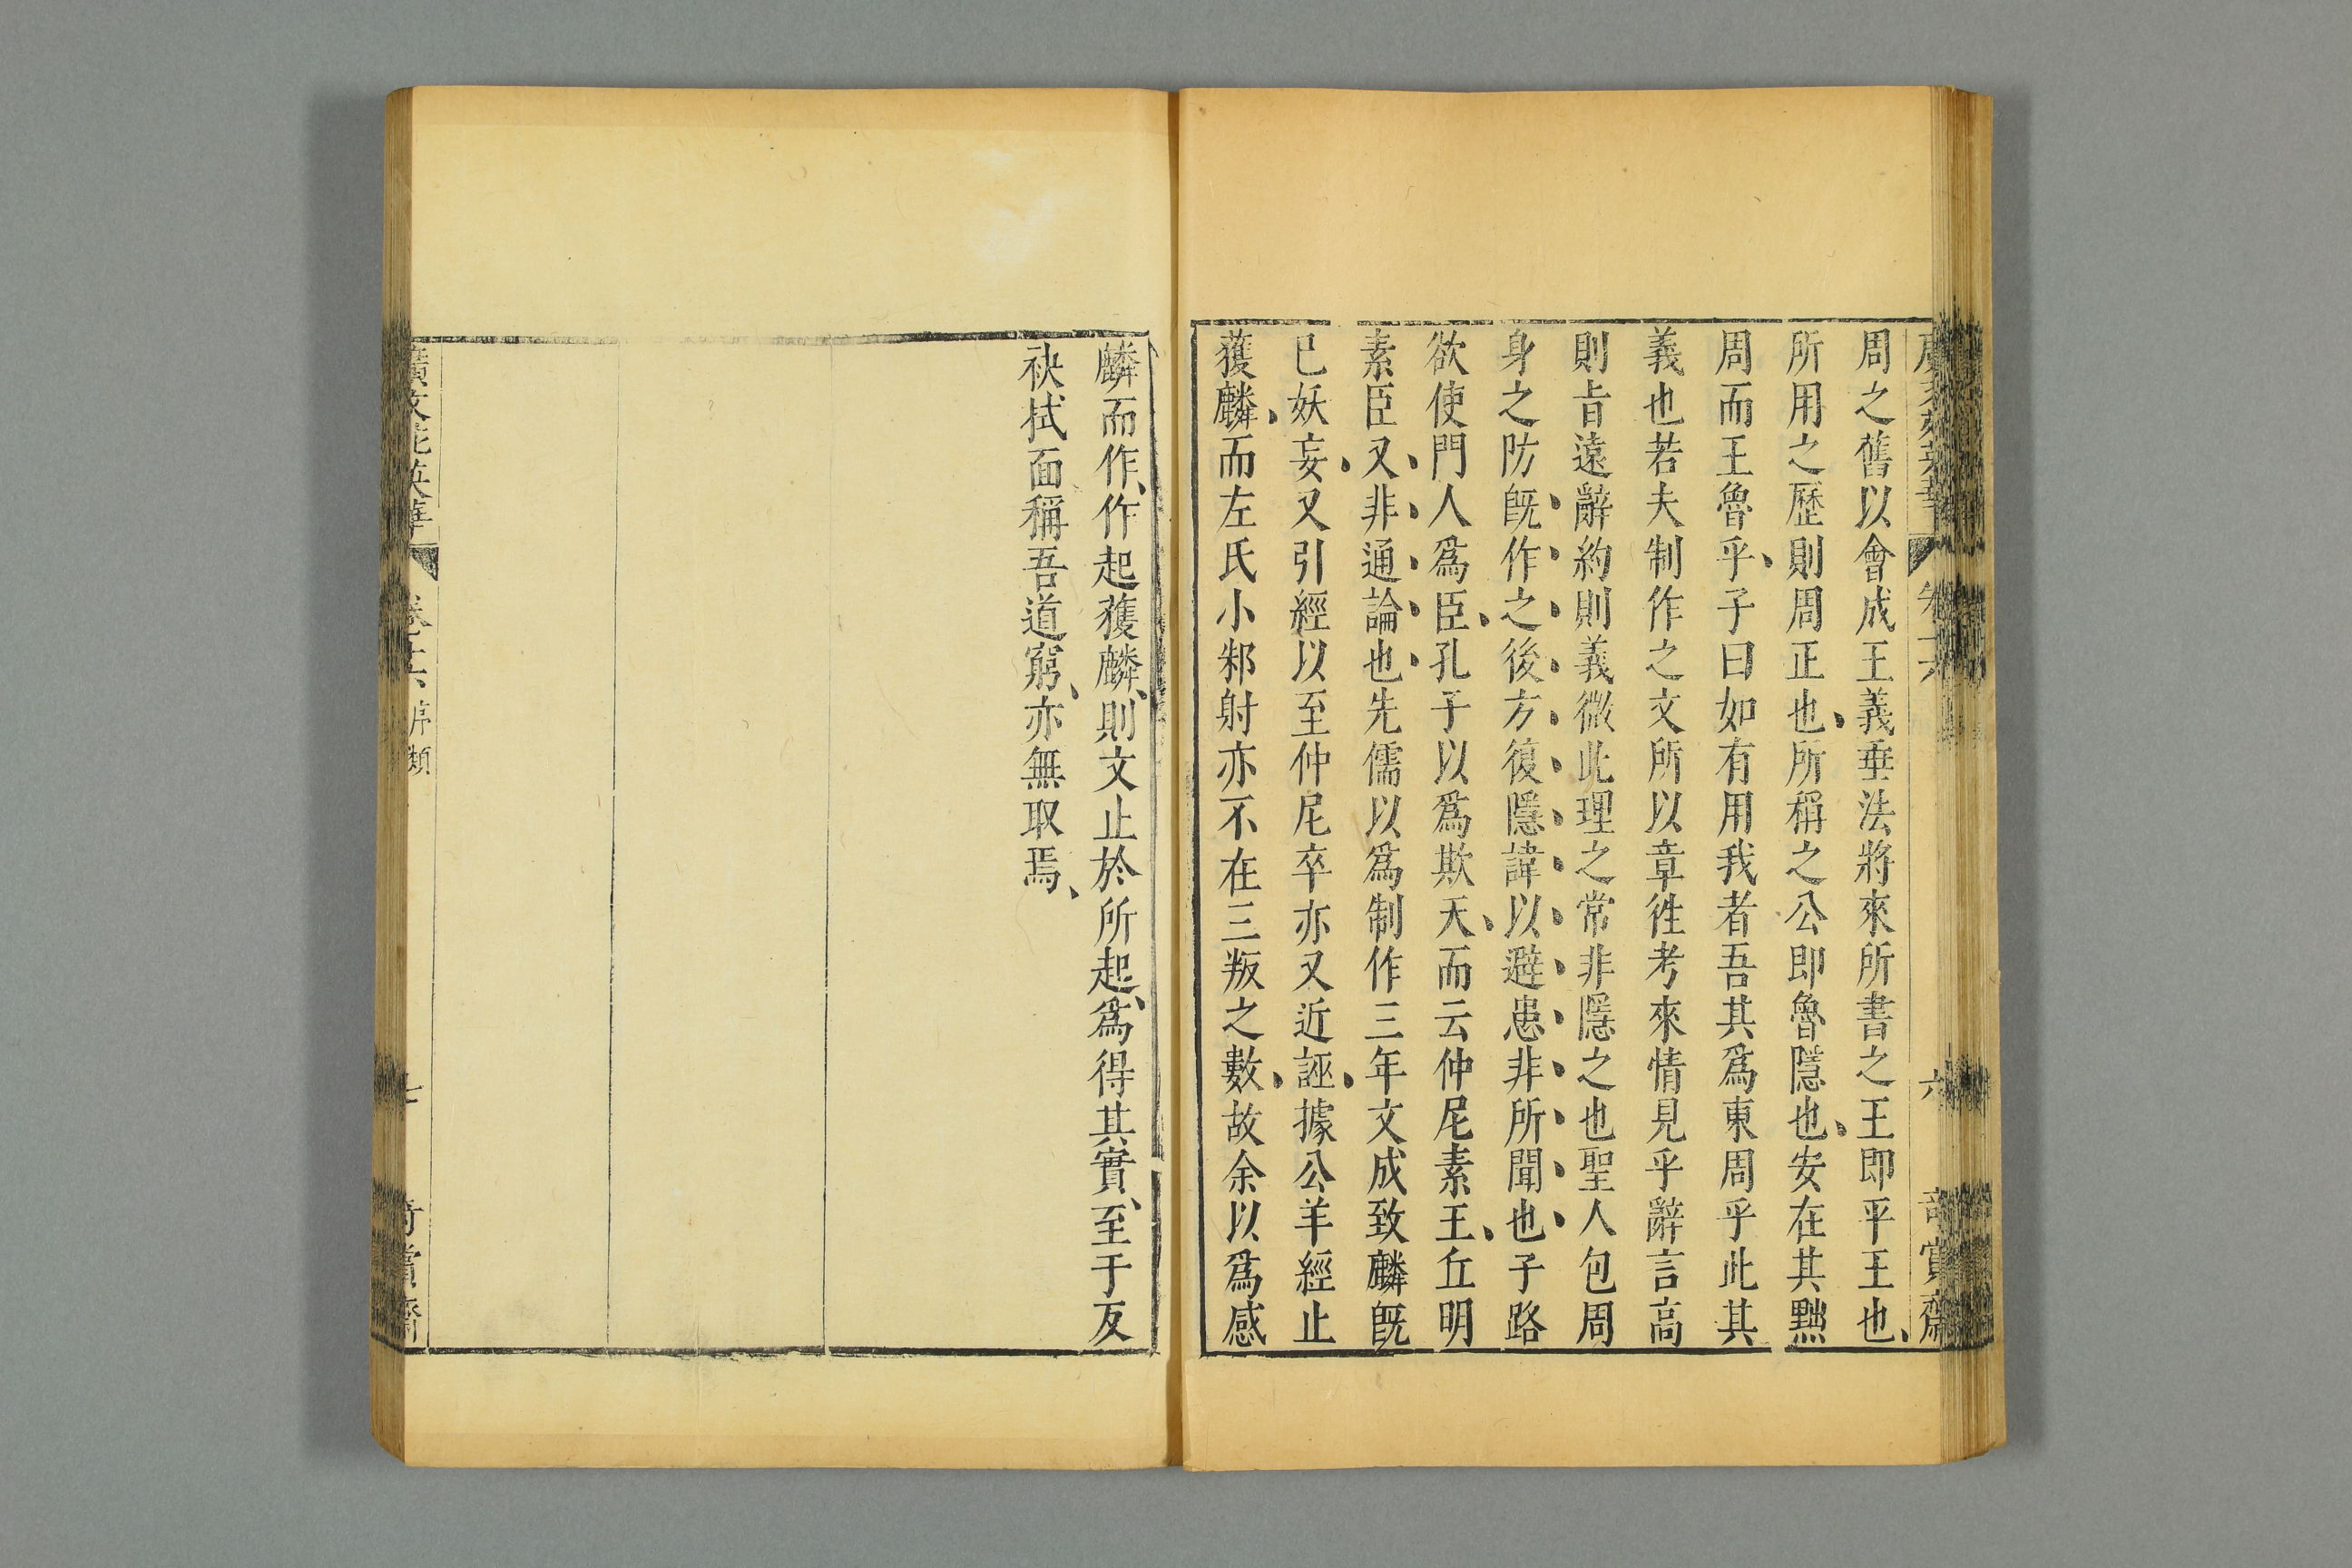 周之舊以會成王義垂法將來所書之王即平王也、
所用之歷則周正也、所稱之公即魯隱也、安在其黜
周而王魯乎、子曰如有用我者吾其爲東周乎此其
義也若夫制作之文所以章徃考來情見乎辭言高
則旨遠辭約則義微此理之常非隱之也聖人包周
身之防旣作之後方復隱諱以避患非所聞也子路
欲使門人爲臣、孔子以爲欺天、而云仲尼素王、丘明
素臣又非通論也先儒以爲制作三年文成致麟旣
已妖妄、又引經以至仲尼卒亦又近誣、據公羊經止
獲麟、而左氏小邾射亦不在三叛之數、故余以爲感
麟而作、作起獲麟、則文止於所起、爲得其實、至于反
袂拭面稱吾道窮、亦無取焉、
廣文苑英華 卷十六 序類 七 奇賞齋